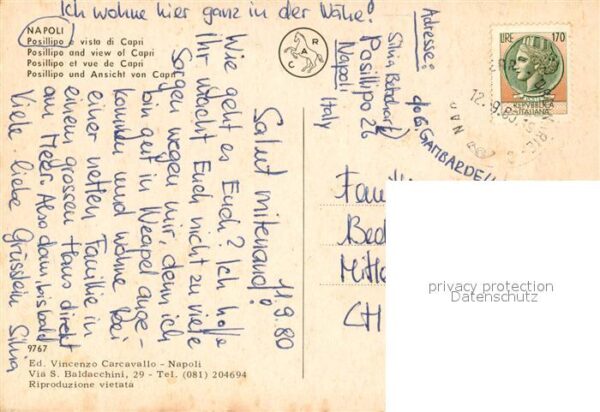 Ich wohne hier ganz in der Nähe!
NAPOLI
Posillipo e vista di Capri
Posillipo and view of Capri
Posillipo et vue de Capri
Posillipo und Ansicht von Capri
R A C
11.9.80
Salut mitenand!
Wie geht es Euch? Ich hoffe
Ihr macht Euch nicht zu viele
Sorgen wegen mir, denn ich
bin gut in Neapel ange-
kommen und wohne bei
einer netten Familie in
einem grossen Haus direkt
am Meer. Also dann, bis bald
Viele liebe Grüsslein Silvia
Adresse:
Silvia
c/o G. GAMBARDE
Posillipo 26
Napoli
Italy
LIRE 170
REPVBBLICA
ITALIANA
12.9.80
Fam
Bed
Mittl
CH
privacy protection
Datenschutz
9767
Ed. Vincenzo Carcavallo - Napoli
Via S. Baldacchini, 29 - Tel. (081) 204694
Riproduzione vietata